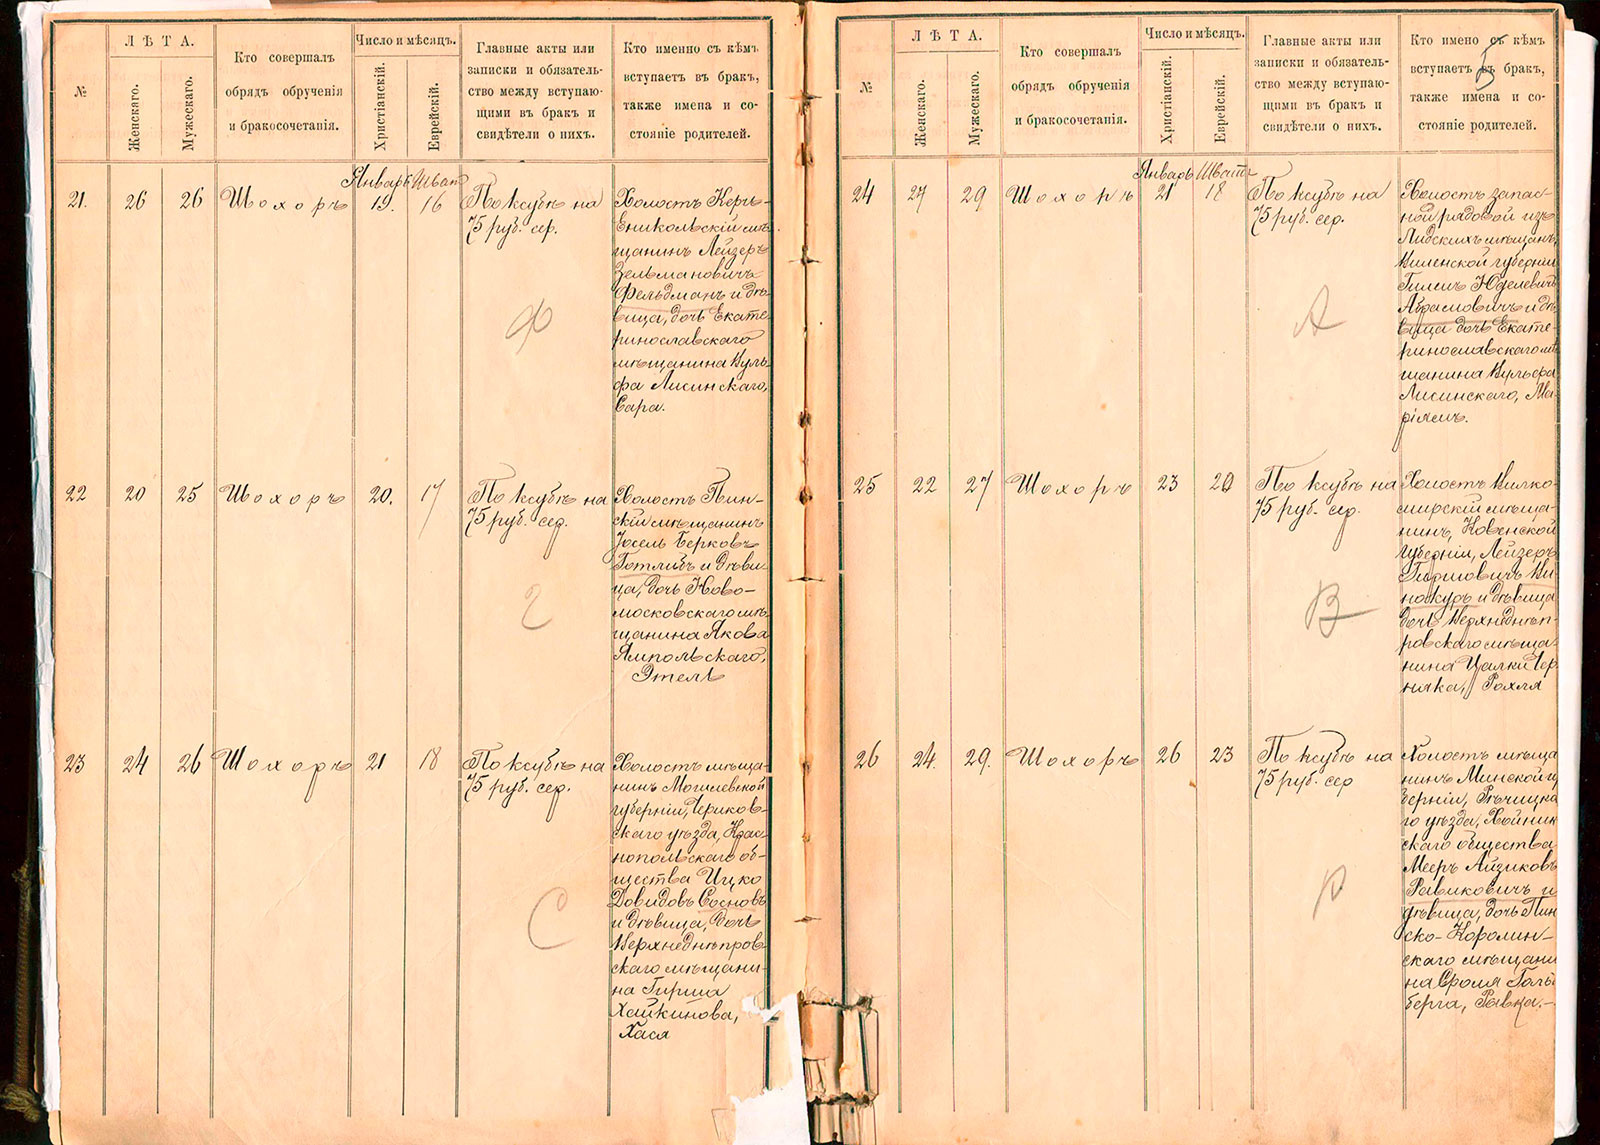 №
ЛѢТА.
Женскаго.
Мужескаго.
Кто совершалъ
обрядъ обрученія
и бракосочетанія.
Число и мѣсяцъ.
Христіанскій.
Еврейскій.
Главные акты или
записки и обязатель-
ство между вступаю-
щими въ бракъ и
свидѣтели о нихъ.
Кто именно съ кѣмъ
вступаетъ въ бракъ,
также имена и со-
стояніе родителей.
Январь Шватъ
21. 26 26 Шохоръ 19. 16
По ксубѣ на
75 руб. сер.
Ф
Холостъ Керчь-
Еникольскій мѣ-
щанинъ Лейзеръ
Зельмановичъ
Фельдманъ и дѣ-
вица, дочь Екате-
ринославскаго
мѣщанина Вуль-
фа Лисинскаго,
Сара.
22 20 25 Шохоръ 20. 17
По ксубѣ на
75 руб. сер.
Г
Холостъ Пин-
скій мѣщанинъ
Іосель Берковъ
Готлибъ и дѣви-
ца, дочь Ново-
московскаго мѣ-
щанина Якова
Ямпольскаго,
Этель
23 24 26 Шохоръ 21 18
По ксубѣ на
75 руб. сер.
С
Холостъ мѣща-
нинъ Могилевской
губерніи, Чериков-
скаго уѣзда, Крас-
нопольскаго об-
щества Ицко
Довидовъ Сосновъ
и дѣвица, дочь
Верхнеднѣпров-
скаго мѣщани-
на Гирша
Хайкинова,
Хася
№
ЛѢТА.
Женскаго.
Мужескаго.
Кто совершалъ
обрядъ обрученія
и бракосочетанія.
Число и мѣсяцъ.
Христіанскій.
Еврейскій.
Главные акты или
записки и обязатель-
ство между вступаю-
щими въ бракъ и
свидѣтели о нихъ.
Кто имено съ кѣмъ
вступаетъ въ бракъ,
также имена и со-
стояніе родителей.
5
Январь Шватъ
24 27 29 Шохоръ 21 18
По ксубѣ на
75 руб. сер.
А
Холостъ запас-
ной рядовой изъ
Лидскихъ мѣщанъ,
Виленской губерніи
Гимель Юделевичъ
Абрамовичъ и дѣ-
вица дочь Екате-
ринославскаго мѣ-
щанина Вульфа
Лисинскаго, Ма-
ріясь.
25 22 27 Шохоръ 23 20
По ксубѣ на
75 руб. сер.
В
Холостъ Вилко-
мирскій мѣща-
нинъ, Ковенской
губерніи, Лейзеръ
Гиршовичъ Ви-
нокуръ и дѣвица
дочь Верхнеднѣп-
ровскаго мѣща-
нина Цалки Чер-
няка, Рохля
26 24. 29. Шохоръ 26 23
По ксубѣ на
75 руб. сер
Р
Холостъ мѣща-
нинъ Минской гу
берніи, Рѣчицка
го уѣзда, Хойник
скаго общества
Мееръ Айзиковъ
Равиковичъ и
дѣвица, дочь Пин
ско-Каролин-
скаго мѣщани
на Сроля Голь
берга, Ривка.-